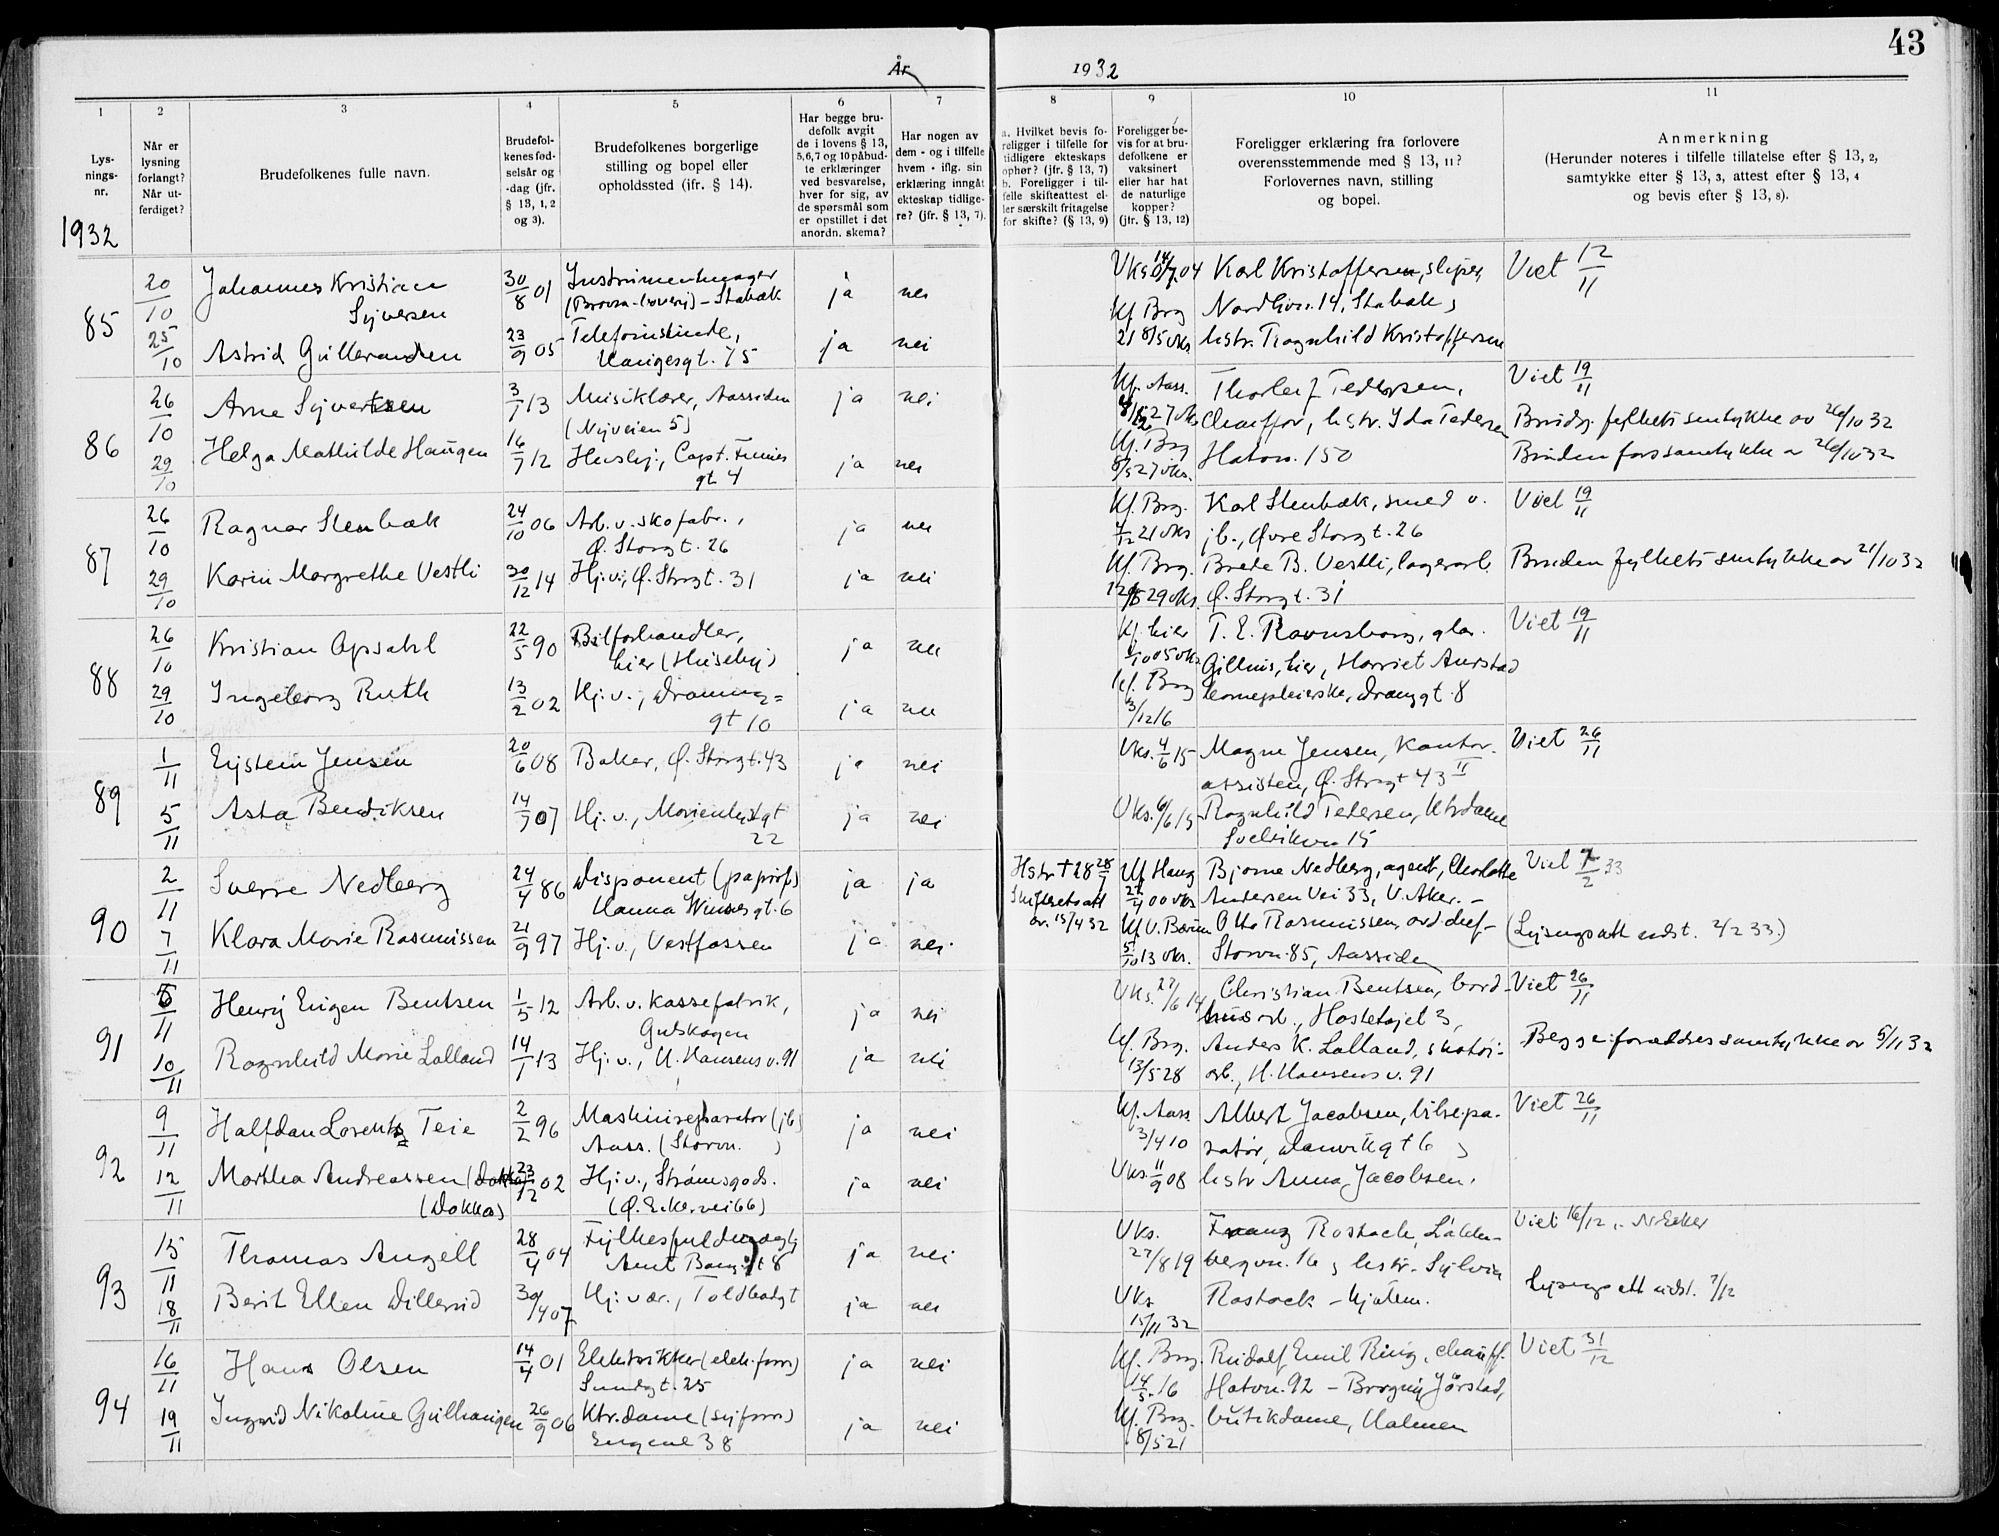 43
År 1932
1
2
3
4
5
6
7
8
9
10
11
Lysningsnr.
Når er lysning forlangt? Når utferdiget?
Brudefolkenes fulle navn.
Brudefolkenes fødselsår og -dag (jfr. § 13, 1, 2 og 3).
Brudefolkenes borgerlige stilling og bopel eller opholdssted (ifr. § 14).
Har begge brudefolk avgit de i lovens § 13, 5,6,7 og 10 påbudte erklæringer ved besvarelse, hver for sig, av de spørsmål som er opstillet i det anordn. skema?
Har nogen av dem - og i tilfelle hvem - iflg. sin erklæring inngåt ekteskap tidligere? (jfr. § 13, 7).
a. Hvilket bevis foreligger i tilfelle for tidligere ekteskaps ophør? (jfr. § 13, 7) b. Foreligger i tilfelle skifteattest eller særskilt fritagelse for skifte? (§ 13, 9)
Foreligger bevis for at brudefolkene er vaksinert eller har hat de naturlige kopper? (jfr. § 13, 12)
Foreligger erklæring fra forlovere overensstemmende med § 13, 11? Forlovernes navn, stilling og bopel.
Anmerkning (Herunder noteres i tilfelle tillatelse efter § 13, 2, samtykke efter § 13, 3, attest efter § 13, 4 og bevis efter § 13, 8).
1932
85 20/10 Johannes Kristian Syversen 30/8 01 Instrumentmager - Stabæk ja nei Karl Kristoffersen, sliper, Viet 12/11
Nordbvn. 14, Stabæk,
25/10 Astrid Gulleranden 23/9 05 Telefonistinde, Haugesgt. 75 ja nei hstr. Ragnhild Kristoffersen
86 26/10 Arne Syvertsen 3/1 13 Musiklærer, Aassiden (Nyveien 5) ja nei Kf. Aass. Thorleif Pedersen, Viet 19/11
Chauffør, hstr. Ida Pedersen Brudg. fylkets samtykke av 26/10 32
29/10 Helga Mathilde Haugen 16/7 12 Hushj., Capt. gt 4 ja nei Kf. Brg. 8/5 27 vks. Havn. 150 Bruden fors samtykke av 26/10 32
87 26/10 Ragnar Stenbæk 24/10 06 Arb. v. skofabr., Ø. Storgt. 26 ja nei Kf. Brg. 21 vks Karl Stenbæk, smed v. jb., Øvre Storgt. 26 Viet 19/11
29/10 Karin Margrethe Vestli 30/12 14 Hj. v., Ø. Storgt. 31 ja nei Kf. Brg. 29 vks. Brede B. Vestli, lagerarb. Ø. Storgt. 31 Bruden fylkets samtykke av 21/10 32
88 26/10 Kristian Opsahl 22/5 90 Bilforhandler, hier (Huseby) ja nei Kf. hier T. E. Ravnsborg, hier, Harriet Aurstad Viet 19/11
29/10 Ingeborg Ruth 13/2 02 Hj. v., Dronningt 10 ja nei Kf. Brg 3/12 16 Drongt. 8
89 1/11 Eystein Jensen 20/6 08 Baker, Ø. Storgt. 43 ja nei Vks. 4/6 15 Magne Jensen, Kontorassisten, Ø. Storgt 43 II Viet 26/11
5/11 Asta Bendiksen 14/7 07 Hj. v., Marienlystgt 22 ja nei Vks. 6/6 15 Ragnhild Pedersen, Ktrdame 15
90 2/11 Sverre Nedberg 24/4 86 Disponent (papirf) Hanna Winsnesgt. 6 ja ja Hstr † 28 28/7 Skifteretsatt av. 15/4 32 Kf Haug 00 vks Bjarne Nedberg, agent, Charlotte Andersen Vei 33, V. Aker. - Viet 7/2 33
7/11 Klara Marie Rasmussen 21/9 97 Hj. v., Vestfossen ja nei. Kf V. Bærum 5/10 13 vks. Otto Rasmussen, Storvn. 85, Aassiden (Lysingsatt udst. 2/2 33)
91 /11 Henry Eugen Bentsen 1/5 12 Arb. v. Kassefabrik, Gulskogen ja nei Vks. 27/6 14 Christian Bentsen, bordhusarb., Hasletøjet 3, Viet 26/11
10/11 Ragnhild Marie Lolland 14/1 13 Hj. v., H. Hansens v. 91 ja nei Kf. Brg. 13/5 28 Anders K. Lolland, skotøiarb., H. Hansens v. 91 Begge: forældres samtykke av 5/11 32
92 9/11 Halfdan Lorentz Teie 2/2 96 Maskinreparatør (jb) Aass. (Storvn. ) ja nei Kf. Aass 3/4 10 Albert Jacobsen, bilreparatør, Danvikgt 6, Viet 26/11
12/11 Martha Andreassen (Dokka) 23/12 02 Hj. v., Strømsgods. (Ø. Eikervei 66) ja nei Vks. 11/9 08 hstr Anna Jacobsen.
93 15/11 Thomas Angell 28/4 04 Fylkesfuldmægtig ja nei Vks. 27/8 19 Franz Rostock, bergvn. 16, hstr. Sylvia Viet 16/12 i N. Eiker
18/11 Berit Ellen Dillerud 30/4 07 Hj: vær., Toldbodgt ja nei Vks 15/11 32 Rostock - hjalem. Lysingsatt udst. 7/12
94 16/11 Hans Olsen 14/4 01 Elektrikker (elek. forr) Sundgt. 25 ja nei Kf. Brg. 14/5 16 Rudolf Emil Ring, chauff. Havn. 92 - Borgny Jørstad, Viet 31/12
19/11 Ingrid Nikoline Gulhaugen 26/9 06 Ktr.dame (syforr) Engene 38 ja nei Kf. Brg. 8/5 21 butikdame, Holmen